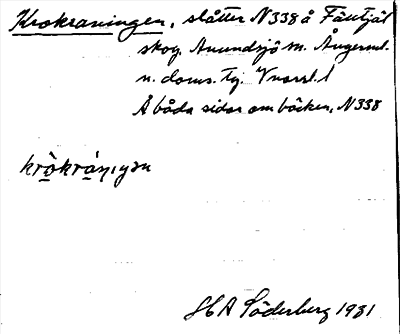 Krokraningen, slåtter N338 å Fänttjäl
skog, Anundsjö sn. Ångerml.
n. doms. tg. Vnorrl. l
Å båda sidor om bäcken, N338
kròkrán,ɪŋən
HA Söderberg 1931